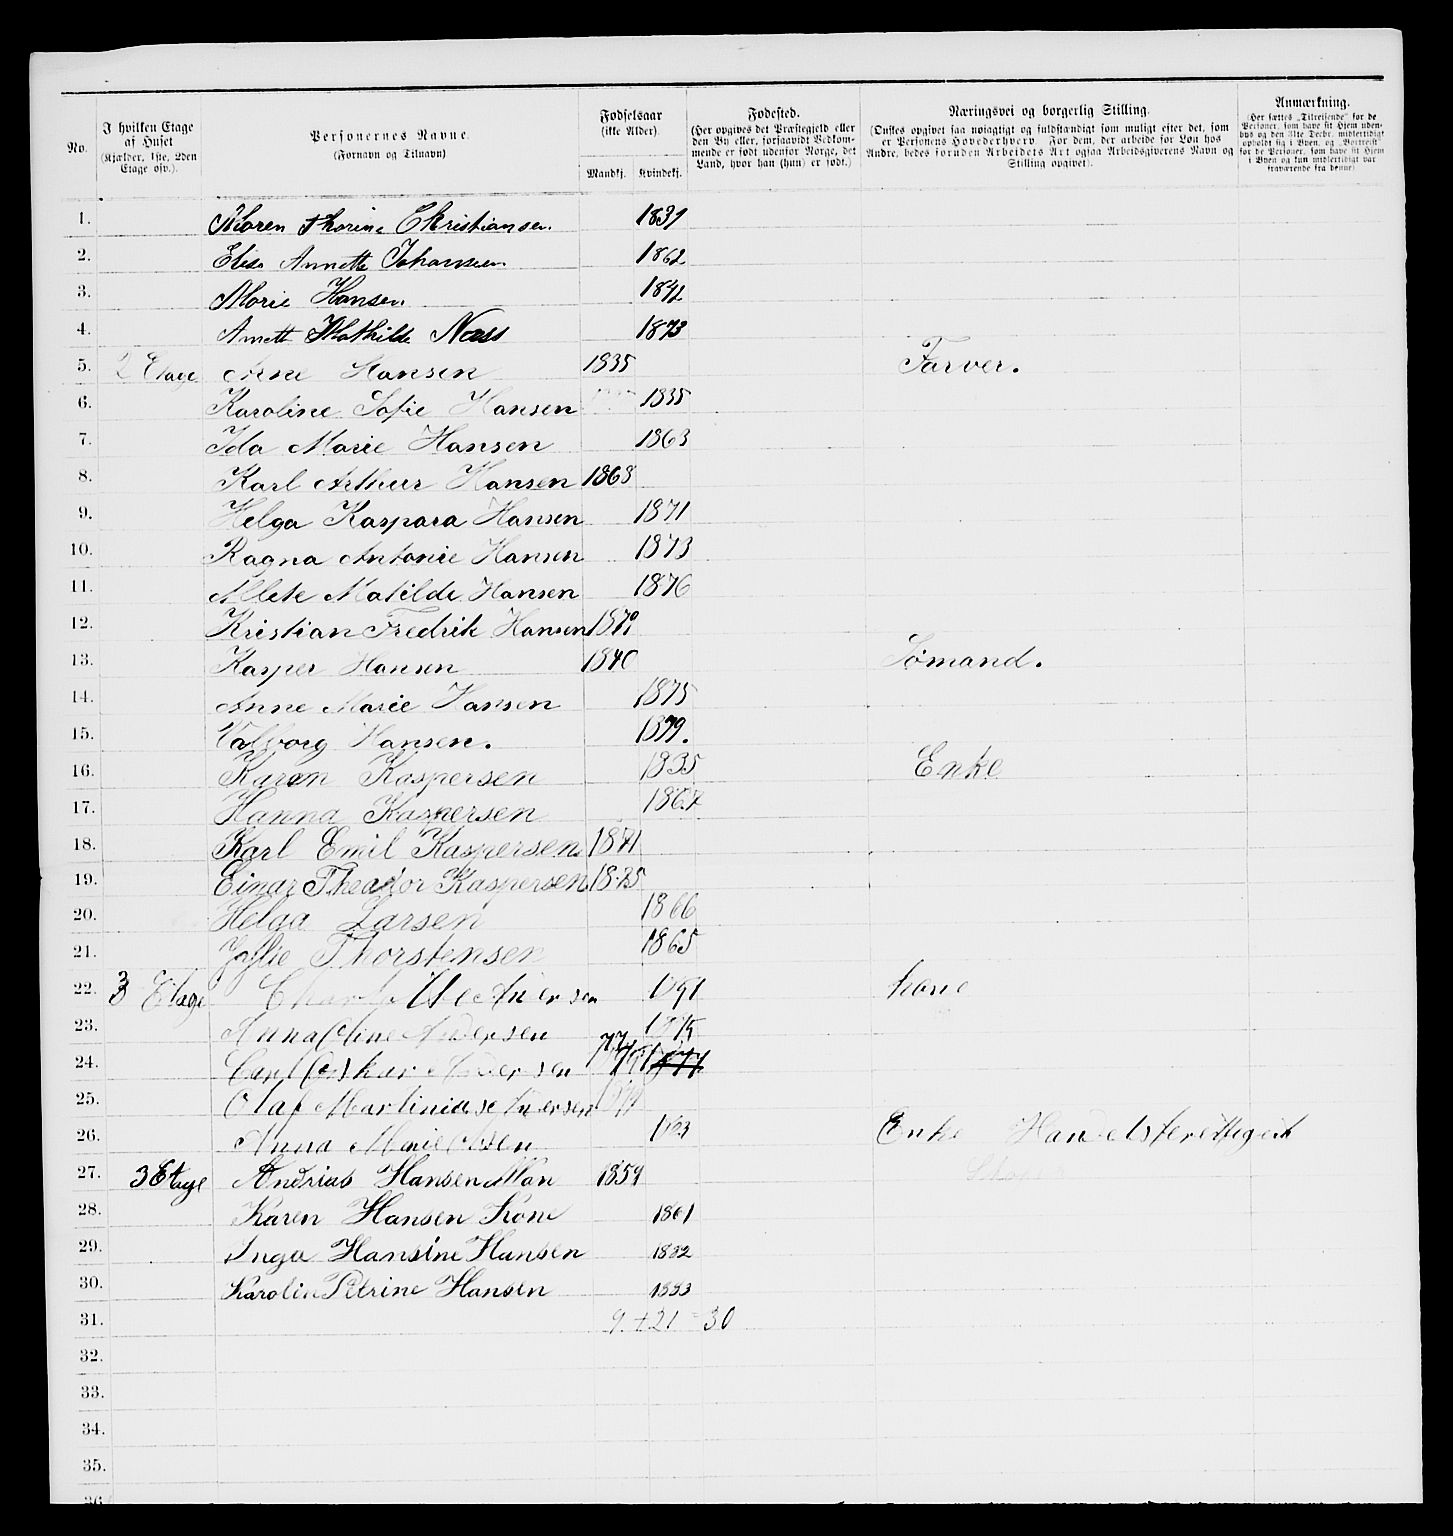 No. | I hvilken Etage af Huset (Kjælder, 1ste, 2den Etage osv.). | Personernes Navne. (Fornavn og Tilnavn) | Fødselsaar (ikke Alder). Mandkj. Kvindekj. | Fødested. (Her opgives det Præstegjeld eller den By eller, forsaavidt Vedkommende er født udenfor Norge, det Land, hvor han (hun) er født.) | Næringsvei og borgerlig Stilling. (Ønskes opgivet saa nøiagtigt og fuldstændigt som muligt efter det, som er Personens Hovederhverv. For dem, der arbeide for Løn hos Andre, bedes foruden Arbeidets Art ogsaa Arbeidsgiverens Navn og Stilling opgivet). | Anmærkning. (Her sættes „Tilreisende" for de Personer, som have sit Hjem udenbys og den 31te Decbr. midlertidigt opholdt sig i Byen, og „Bortreist" for de Personer, som have sit Hjem i Byen og kun midlertidigt var fraværende fra denne)
1. Maren Thorine Christiansen. 1839
2. Elise Annette Johansen. 1862
3. Marie Hansen. 1842
4. Anett Mathilde Næss 1873
5. 2 Etage Arne Hansen 1835 Farver.
6. Karoline Sofie Hansen 1835
7. Ida Marie Hansen 1863
8. Karl Arthur Hansen 1868
9. Helga Kaspara Hansen 1871
10. Ragna Antonie Hansen 1873
11. Alete Matilde Hansen 1876
12. Kristian Fredrik Hansen 1879
13. Kasper Hansen 1840 Sømand.
14. Anne Marie Hansen 1875
15. Valborg Hansen. 1879.
16. Karen Kaspersen 1835 Enke
17. Hanna Kaspersen 1867
18. Karl Emil Kaspersen 1871
19. Einar Theador Kaspersen 1875
20. Helga Larsen 1866
21. Thorstensen 1865
22. 3 Etage kone
23. Anna Oline Andersen
24. Carl Oskar Andersen
25. Olaf Martiniuse Andersen
26. Anna Marie Olsen Enke Handelsberettiget
27. 3 Etage Andrias Hansen Man 1859
28. Karen Hansen Kone 1861
29. Inga Hansine Hansen 1882
30. Karolin Petrine Hansen 1883
31. 9 + 21 = 30
32.
33.
34.
35.
36